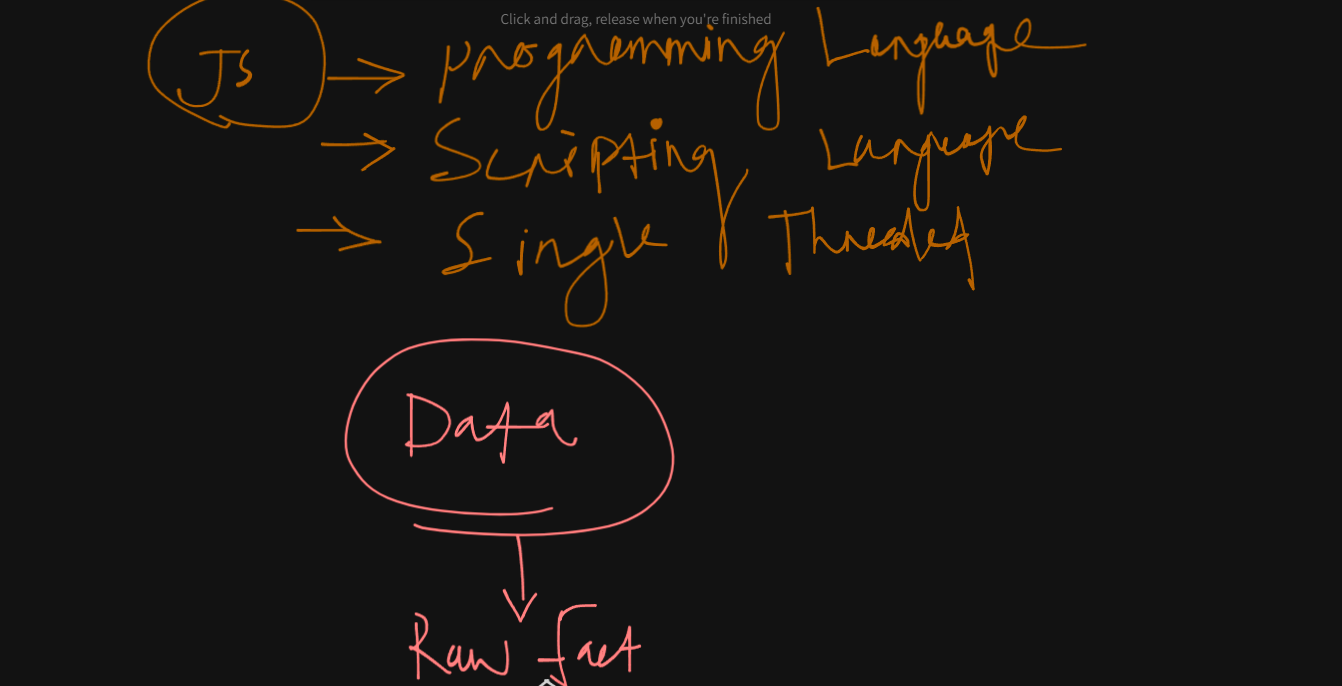 Click and drag, release when you're finished
JS → Programming Language
→ Scripting Language
→ Single Threaded
Data
Raw fact